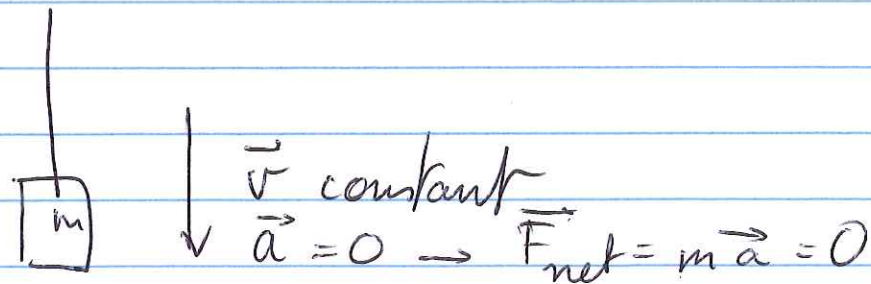 m
v⃗ constant
a⃗ = 0 → F⃗net = m a⃗ = 0